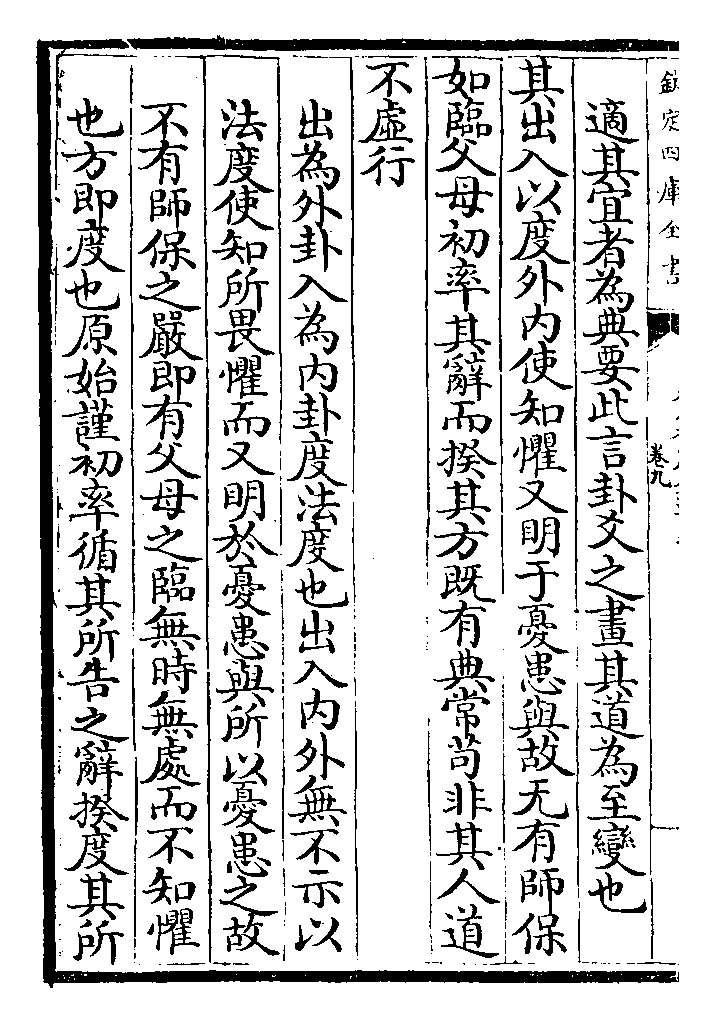 欽定四庫全書
卷九
適其宜者為典要此言卦爻之畫其道為至變也
其出入以度外内使知懼又明于憂患與故无有師保
如臨父母初率其辭而揆其方既有典常茍非其人道
不虛行
出為外卦入為内卦度法度也出入内外無不示以
法度使知所畏懼而又明於憂患與所以憂患之故
不有師保之嚴即有父母之臨無時無處而不知懼
也方即度也原始謹初率循其所告之辭揆度其所